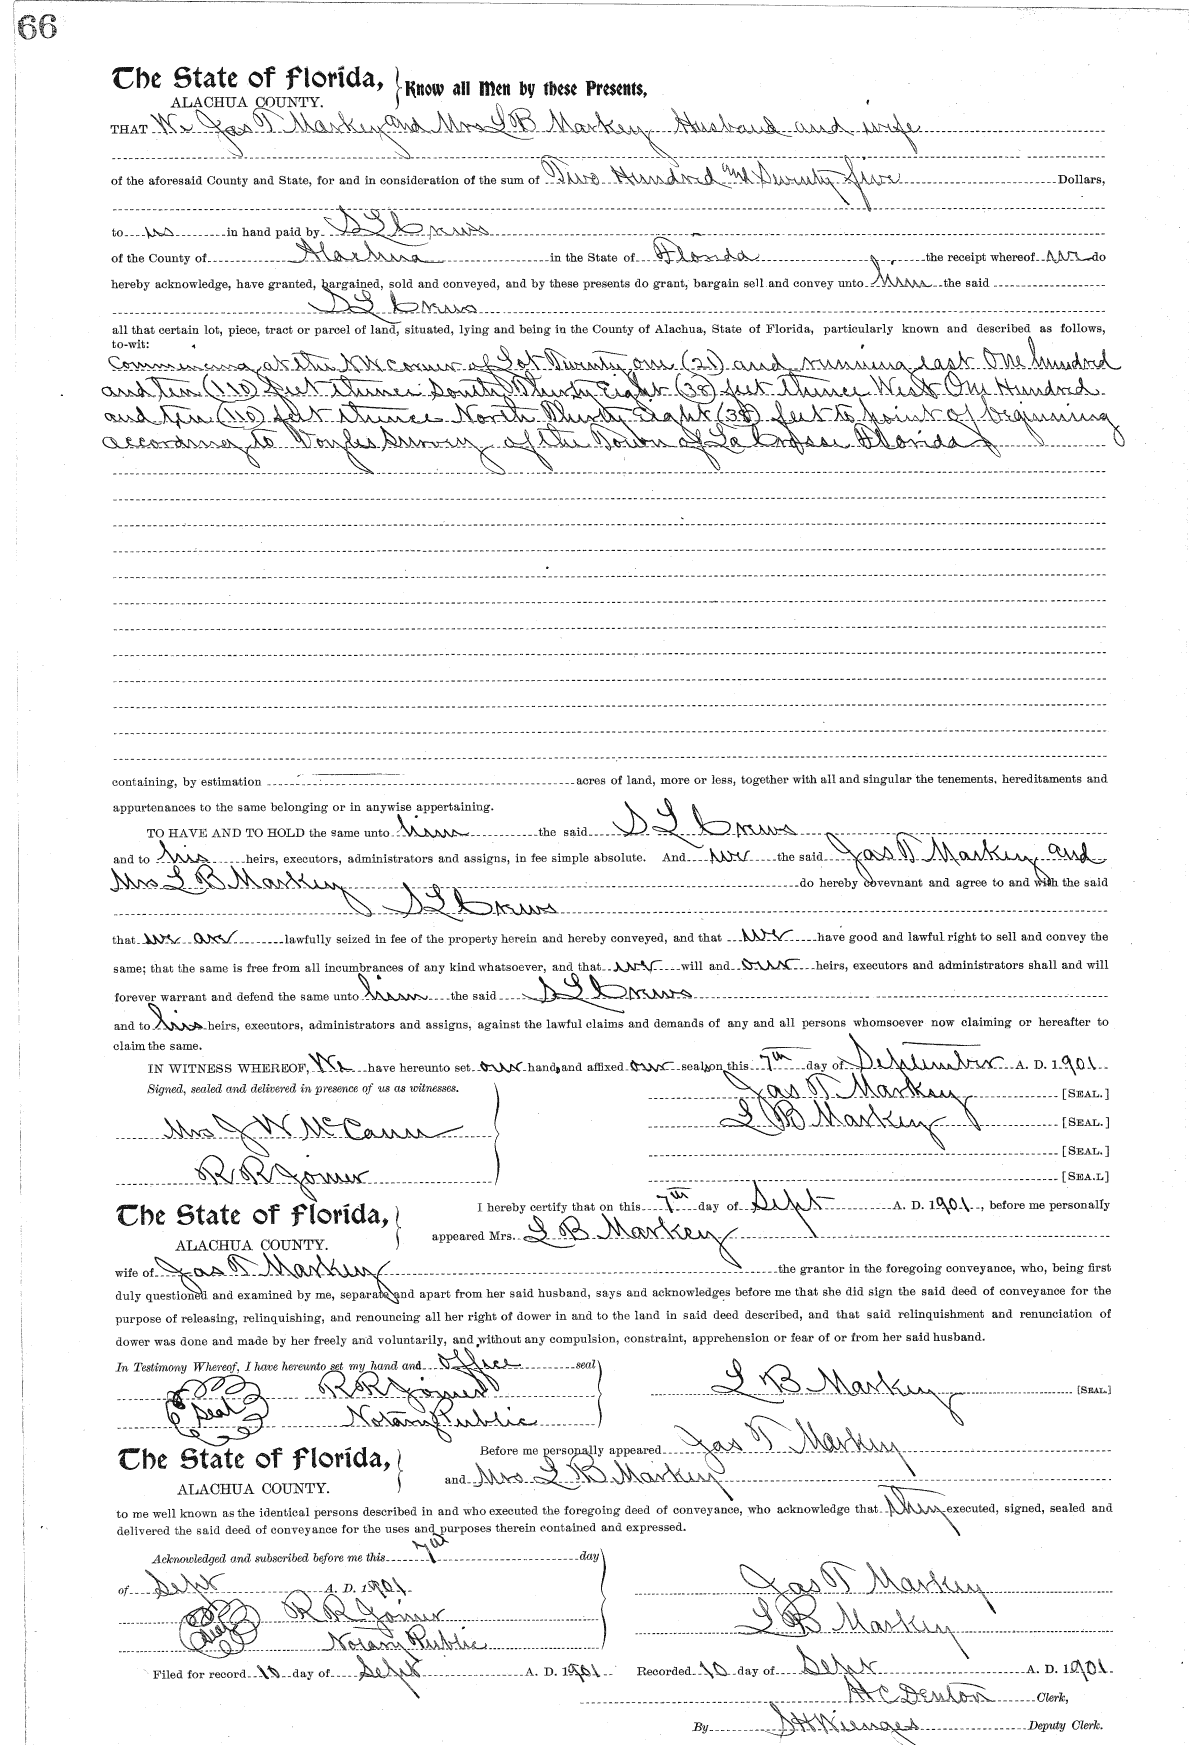 66
The State of Florida, Know all Men by these Presents,
ALACHUA COUNTY.
THAT We Jas T Markey and Mrs L B Markey Husband and wife
of the aforesaid County and State, for and in consideration of the sum of Two Hundred and Seventy five Dollars,
to us in hand paid by S L Crews
of the County of Alachua in the State of Florida the receipt whereof we do
hereby acknowledge, have granted, bargained, sold and conveyed, and by these presents do grant, bargain sell and convey unto him the said
S L Crews
all that certain lot, piece, tract or parcel of land, situated, lying and being in the County of Alachua, State of Florida, particularly known and described as follows,
to-wit:
Commencing at the NW corner of Lot Twenty one (21) and running East One hundred
and ten (110) feet thence South Thirty Eight (38) feet thence West One Hundred
and Ten (110) feet thence North Thirty Eight (38) feet to point of beginning
according to Survey of the Town of La Crosse Florida
containing, by estimation acres of land, more or less, together with all and singular the tenements, hereditaments and
appurtenances to the same belonging or in anywise appertaining.
TO HAVE AND TO HOLD the same unto him the said S L Crews
and to his heirs, executors, administrators and assigns, in fee simple absolute. And we the said Jas T Markey and
Mrs L B Markey do hereby covevnant and agree to and with the said
S L Crews
that we are lawfully seized in fee of the property herein and hereby conveyed, and that we have good and lawful right to sell and convey the
same; that the same is free from all incumbrances of any kind whatsoever, and that we will and our heirs, executors and administrators shall and will
forever warrant and defend the same unto him the said S L Crews
and to his heirs, executors, administrators and assigns, against the lawful claims and demands of any and all persons whomsoever now claiming or hereafter to
claim the same.
IN WITNESS WHEREOF, We have hereunto set our hands and affixed our seals on this 7th day of September A. D. 1901
Signed, sealed and delivered in presence of us as witnesses. Jas T Markey [SEAL.]
L B Markey [SEAL.]
Mrs J W McCann
[SEAL.]
R R Joiner [SEA.L]
The State of Florida, I hereby certify that on this 7th day of Sept A. D. 1901, before me personally
ALACHUA COUNTY. appeared Mrs. L B Markey
wife of Jas T Markey the grantor in the foregoing conveyance, who, being first
duly questioned and examined by me, separate and apart from her said husband, says and acknowledges before me that she did sign the said deed of conveyance for the
purpose of releasing, relinquishing, and renouncing all her right of dower in and to the land in said deed described, and that said relinquishment and renunciation of
dower was done and made by her freely and voluntarily, and without any compulsion, constraint, apprehension or fear of or from her said husband.
In Testimony Whereof, I have hereunto set my hand and office seal
R R Joiner L B Markey [SEAL.]
Seal Notary Public
The State of Florida, Before me personally appeared Jas T Markey
ALACHUA COUNTY. and Mrs L B Markey
to me well known as the identical persons described in and who executed the foregoing deed of conveyance, who acknowledge that they executed, signed, sealed and
delivered the said deed of conveyance for the uses and purposes therein contained and expressed.
Acknowledged and subscribed before me this 7th day
of Sept A. D. 1901 Jas T Markey
Seal R R Joiner L B Markey
Notary Public
Filed for record 10 day of Sept A. D. 1901 Recorded 10 day of Sept A. D. 1901
H C Denton Clerk,
By S H Wienges Deputy Clerk.